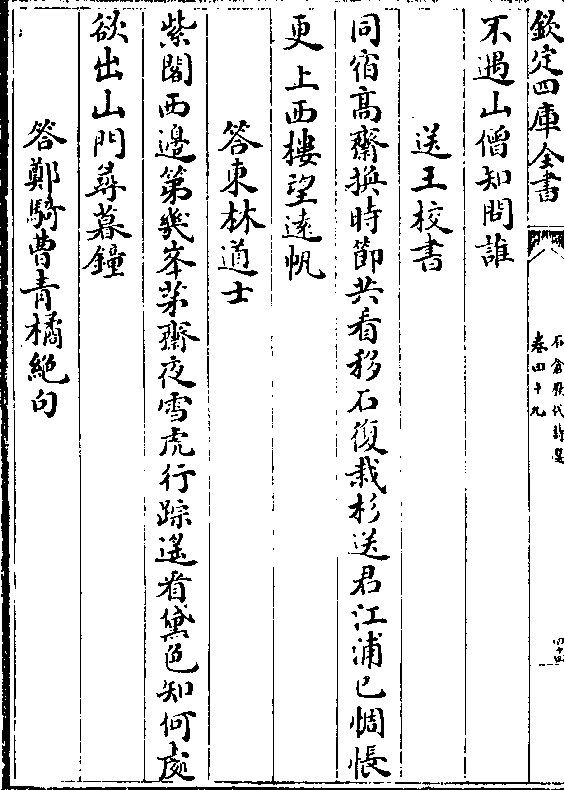 欽定四庫全書
石倉歷代詩選
卷四十九
四十四
不遇山僧知問誰
送王校書
同宿髙齋換時節共看移石復栽杉送君江浦已惆悵
更上西樓望逺帆
答東林道士
紫閣西邊第幾峯茅齋夜雪虎行蹤遥看黛色知何處
欲出山門尋暮鐘
答鄭騎曹青橘絶句